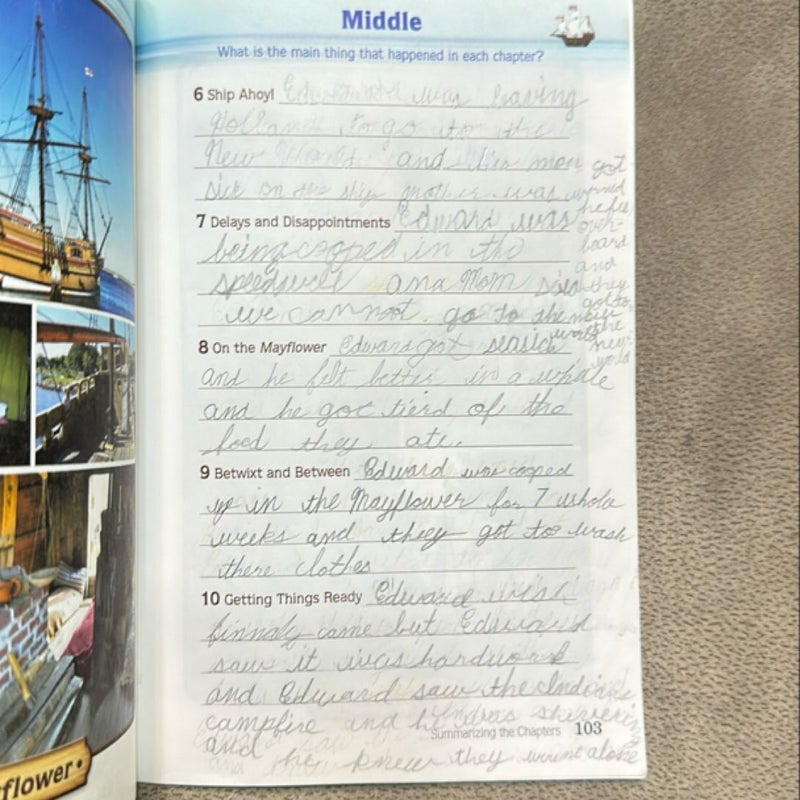 Middle
What is the main thing that happened in each chapter?
6 Ship Ahoy! Edward was leaving
Holland to go to the
New World and his mom got
sick on the ship mother was worried
he fell
over-
board
and
they
got to
the
new
world
7 Delays and Disappointments Edward was
being cooped in the
speedwell and Mom said
we cannot go to the new
world
8 On the Mayflower Edward got seasick
and he felt better in a whale
and he got tierd of the
food they ate.
9 Betwixt and Between Edward was cooped
up in the Mayflower for 7 whole
weeks and they got to wash
there clothes
10 Getting Things Ready Edward
finnaly came but Edward
saw it was hardwork
and Edward saw the Indians
campfire and he was shivering
and he knew they were alone
Summarizing the Chapters 103
flower •